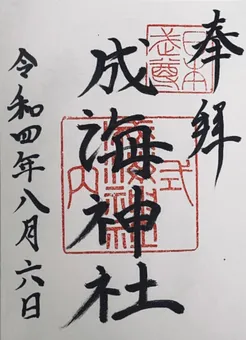 奉拝
成海神社
令和四年八月六日
式内